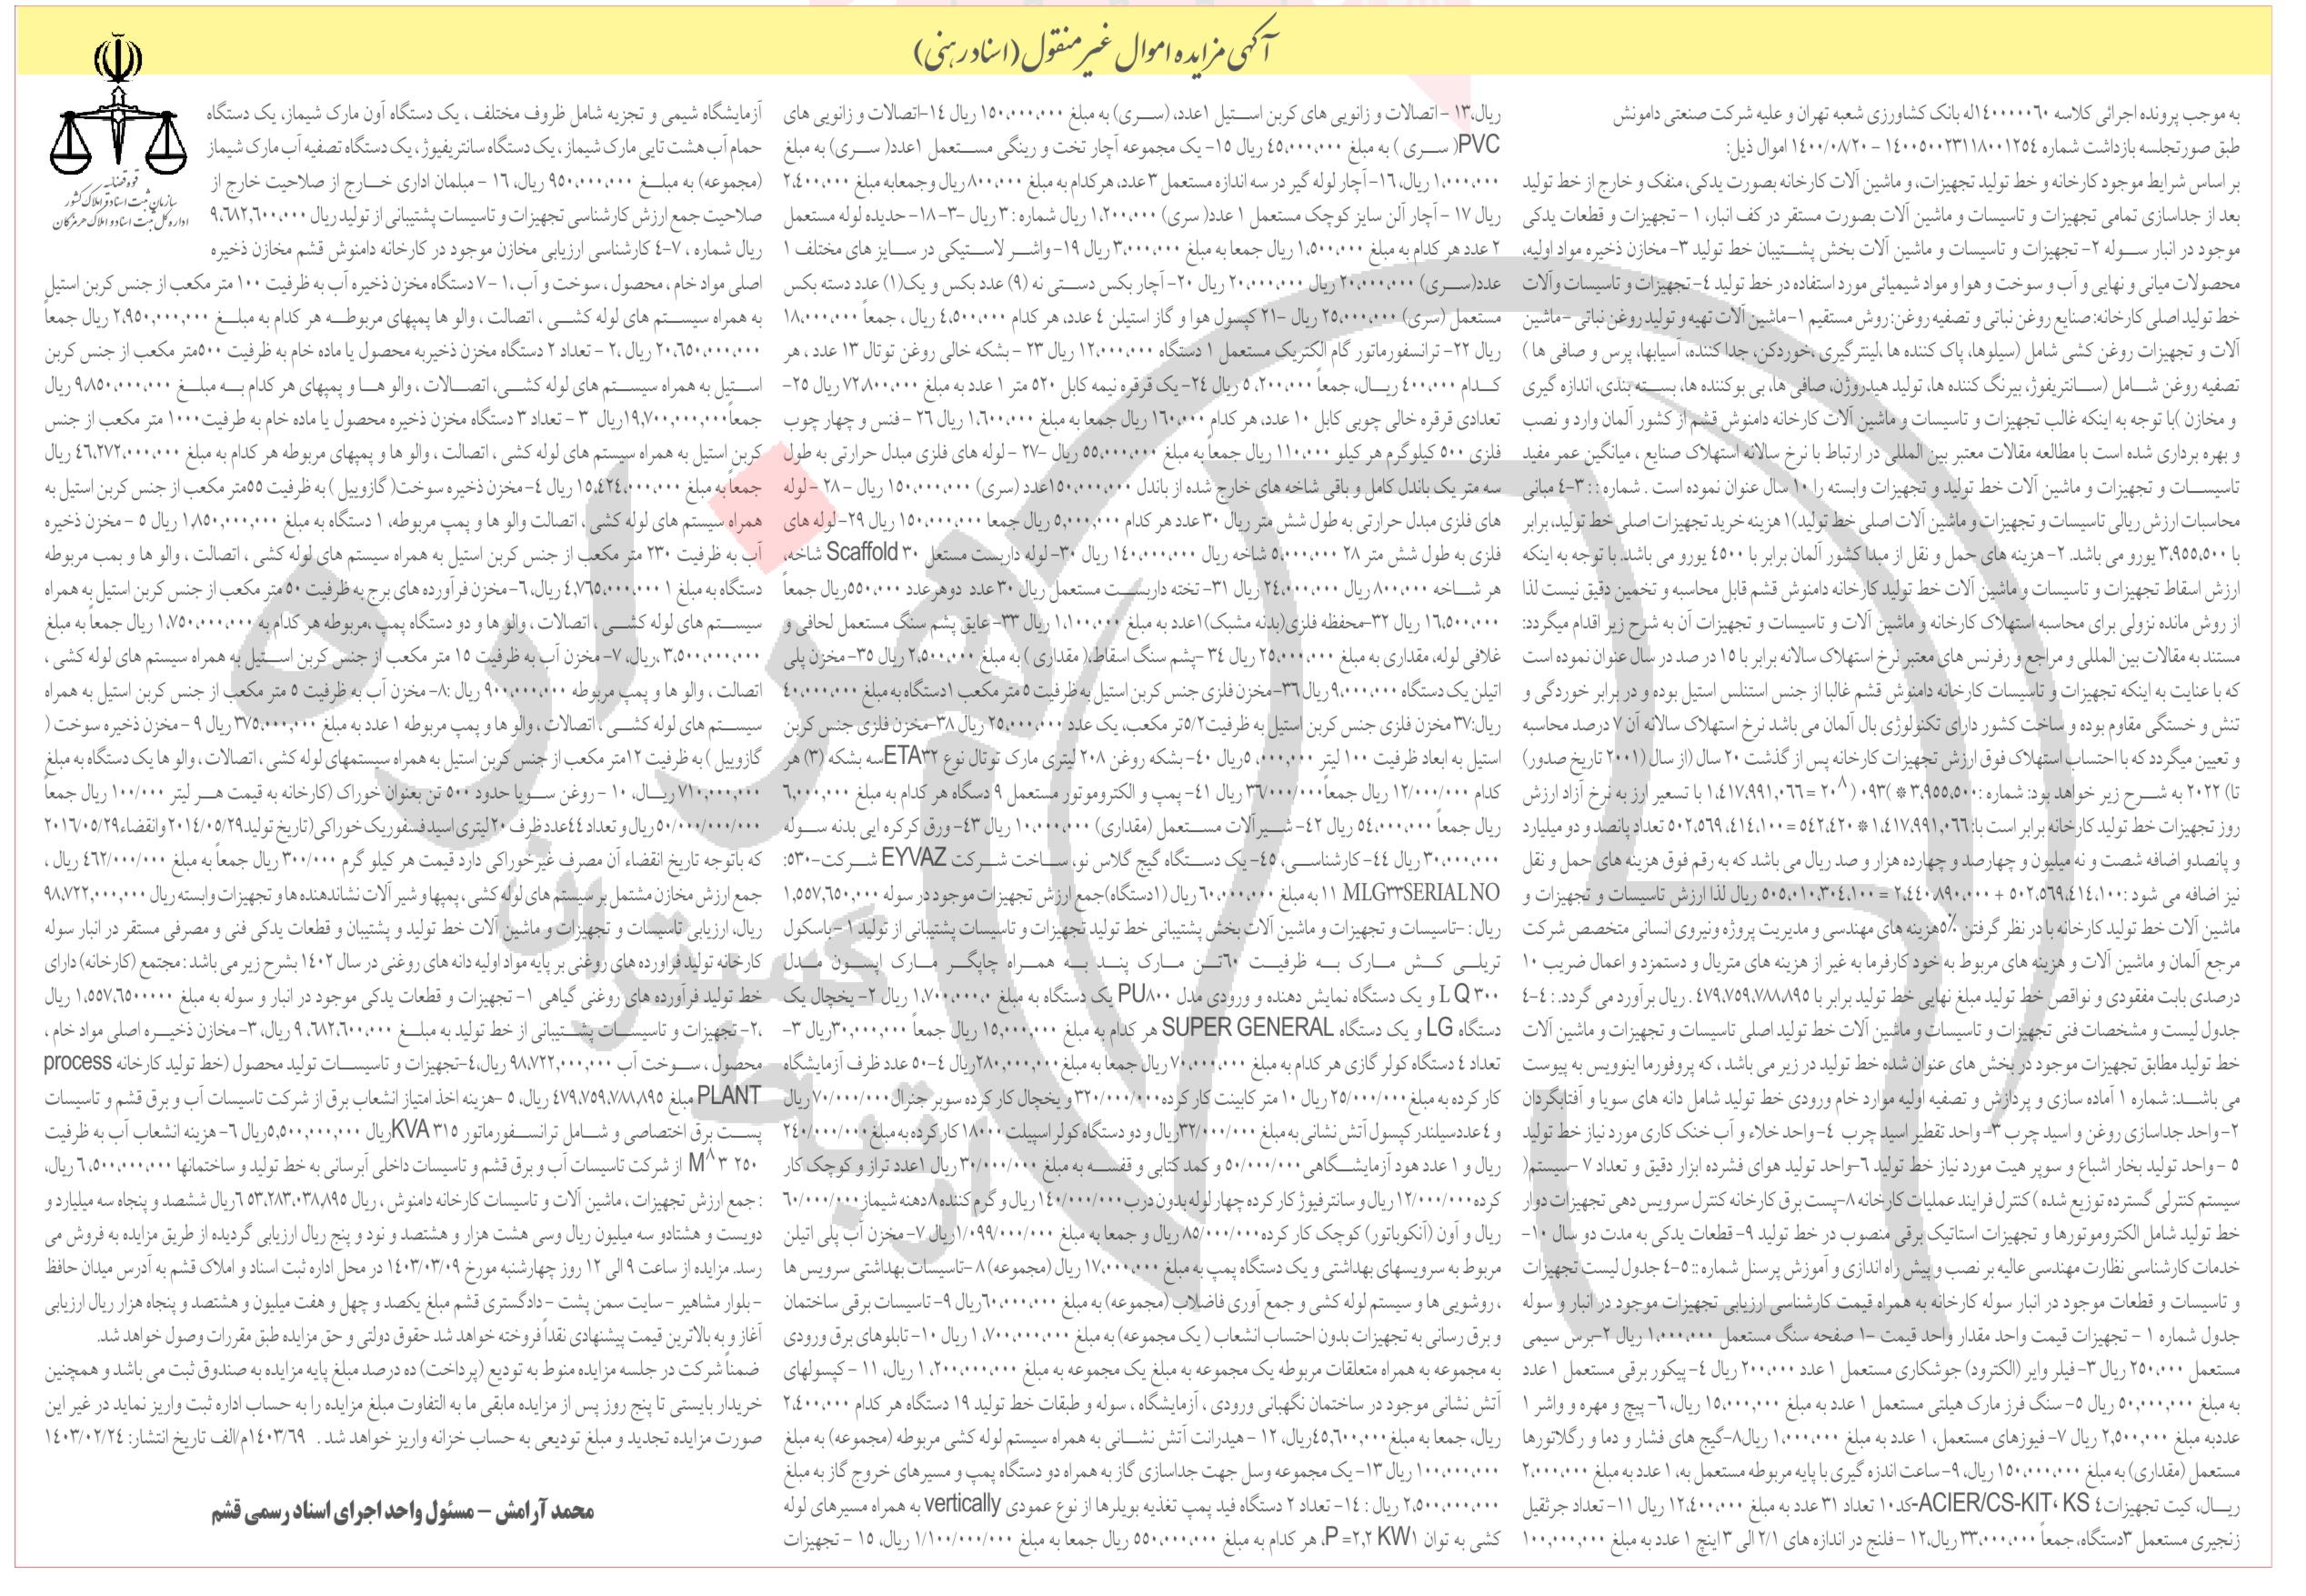 آگهی مزایده اموال غیر منقول (اسناد رهنی)
قوه قضائیه
سازمان ثبت اسناد و املاک کشور
اداره کل ثبت اسناد و املاک هرمزگان
به موجب پرونده اجرائی کلاسه ۱۴۰۰۰۰۰۶۰له بانک کشاورزی شعبه تهران و علیه شرکت صنعتی دامونش
طبق صورتجلسه بازداشت شماره ۱۴۰۰۵۰۰۲۳۱۱۸۰۰۱۲۵۴ - ۱۴۰۰/۰۸/۲۰ اموال ذیل:
بر اساس شرایط موجود کارخانه و خط تولید تجهیزات، و ماشین آلات کارخانه بصورت یدکی، منفک و خارج از خط تولید
بعد از جداسازی تمامی تجهیزات و تاسیسات و ماشین آلات بصورت مستقر در کف انبار، ۱ - تجهیزات و قطعات یدکی
موجود در انبار سوله ۲- تجهیزات و تاسیسات و ماشین آلات بخش پشتیبان خط تولید ۳- مخازن ذخیره مواد اولیه،
محصولات میانی و نهایی و آب و سوخت و هوا و مواد شیمیائی مورد استفاده در خط تولید ۴- تجهیزات و تاسیسات وآلات
خط تولید اصلی کارخانه: صنایع روغن نباتی و تصفیه روغن: روش مستقیم ۱-ماشین آلات تهیه و تولید روغن نباتی -ماشین
آلات و تجهیزات روغن کشی شامل (سیلوها، پاک کننده ها ،لینترگیری ،خوردکن، جدا کننده، آسیابها، پرس و صافی ها )
تصفیه روغن شامل (سانتریفوژ، بیرنگ کننده ها، تولید هیدروژن، صافی ها، بی بوکننده ها، بسته بندی، اندازه گیری
و مخازن )با توجه به اینکه غالب تجهیزات و تاسیسات و ماشین آلات کارخانه دامنوش قشم از کشور آلمان وارد و نصب
و بهره برداری شده است با مطالعه مقالات معتبر بین المللی در ارتباط با نرخ سالانه استهلاک صنایع ، میانگین عمر مفید
تاسیسات و تجهیزات و ماشین آلات خط تولید و تجهیزات وابسته را ۱۰ سال عنوان نموده است . شماره : : ۳-۴ مبانی
محاسبات ارزش ریالی تاسیسات و تجهیزات و ماشین آلات اصلی خط تولید)۱ هزینه خرید تجهیزات اصلی خط تولید، برابر
با ۳،۹۵۵،۵۰۰ یورو می باشد. ۲- هزینه های حمل و نقل از مبدا کشور آلمان برابر با ۴۵۰۰ یورو می باشد. با توجه به اینکه
ارزش اسقاط تجهیزات و تاسیسات و ماشین آلات خط تولید کارخانه دامنوش قشم قابل محاسبه و تخمین دقیق نیست لذا
از روش مانده نزولی برای محاسبه استهلاک کارخانه و ماشین آلات و تاسیسات و تجهیزات آن به شرح زیر اقدام میگردد:
مستند به مقالات بین المللی و مراجع و رفرنس های معتبر نرخ استهلاک سالانه برابر با ۱۵ در صد در سال عنوان نموده است
که با عنایت به اینکه تجهیزات و تاسیسات کارخانه دامنوش قشم غالبا از جنس استنلس استیل بوده و در برابر خوردگی و
تنش و خستگی مقاوم بوده و ساخت کشور دارای تکنولوژی بال آلمان می باشد نرخ استهلاک سالانه آن ۷ درصد محاسبه
و تعیین میگردد که با احتساب استهلاک فوق ارزش تجهیزات کارخانه پس از گذشت ۲۰ سال (از سال (۲۰۰۱ تاریخ صدور)
تا) ۲۰۲۲ به شرح زیر خواهد بود: شماره :۳،۹۵۵،۵۰۰ * )۰۹۳ ( ۲۰^ = ۱،۴۱۷،۹۹۱،۰۶۶ با تسعیر ارز به نرخ آزاد ارزش
روز تجهیزات خط تولید کارخانه برابر است با: ۱،۴۱۷،۹۹۱،۰۶۶ * ۵۴۲،۴۲۰ = ۵۰۲،۵۶۹،۴۱۴،۱۰۰ تعداد پانصد و دو میلیارد
و پانصدو اضافه شصت و نه میلیون و چهارصد و چهارده هزار و صد ریال می باشد که به رقم فوق هزینه های حمل و نقل
نیز اضافه می شود : ۵۰۲،۵۶۹،۴۱۴،۱۰۰ + ۲،۴۴۰،۸۹۰،۰۰۰ = ۵۰۵،۰۱۰،۳۰۴،۱۰۰ ریال لذا ارزش تاسیسات و تجهیزات و
ماشین آلات خط تولید کارخانه با در نظر گرفتن ۵٪هزینه های مهندسی و مدیریت پروژه ونیروی انسانی متخصص شرکت
مرجع آلمان و ماشین آلات و هزینه های مربوط به خود کارفرما به غیر از هزینه های متریال و دستمزد و اعمال ضریب ۱۰
درصدی بابت مفقودی و نواقص خط تولید مبلغ نهایی خط تولید برابر با ۴۷۹،۷۵۹،۷۸۸،۸۹۵ . ریال برآورد می گردد. : ۴-۴
جدول لیست و مشخصات فنی تجهیزات و تاسیسات و ماشین آلات خط تولید اصلی تاسیسات و تجهیزات و ماشین آلات
خط تولید مطابق تجهیزات موجود در بخش های عنوان شده خط تولید در زیر می باشد ، که پروفورما اینوویس به پیوست
می باشد: شماره ۱ آماده سازی و پردازش و تصفیه اولیه موارد خام ورودی خط تولید شامل دانه های سویا و آفتابگردان
۲- واحد جداسازی روغن و اسید چرب ۳-واحد تقطیر اسید چرب ۴- واحد خلاء و آب خنک کاری مورد نیاز خط تولید
۵ - واحد تولید بخار اشباع و سوپر هیت مورد نیاز خط تولید ۶-واحد تولید هوای فشرده ابزار دقیق و تعداد ۷ -سیستم(
سیستم کنترلی گسترده توزیع شده ) کنترل فرایند عملیات کارخانه ۸-پست برق کارخانه کنترل سرویس دهی تجهیزات دوار
خط تولید شامل الکتروموتورها و تجهیزات استاتیک برقی منصوب در خط تولید ۹- قطعات یدکی به مدت دو سال ۱۰-
خدمات کارشناسی نظارت مهندسی عالیه بر نصب و پیش راه اندازی و آموزش پرسنل شماره :: ۵-۴ جدول لیست تجهیزات
و تاسیسات و قطعات موجود در انبار سوله کارخانه به همراه قیمت کارشناسی ارزیابی تجهیزات موجود در انبار و سوله
جدول شماره ۱ - تجهیزات قیمت واحد مقدار واحد قیمت -۱ صفحه سنگ مستعمل ۱،۰۰۰،۰۰۰ ریال ۲-برس سیمی
مستعمل ۲۵۰،۰۰۰ ریال ۳-فیلر وایر (الکترود) جوشکاری مستعمل ۱ عدد ۲۰۰،۰۰۰ ریال ۴- پیکور برقی مستعمل ۱ عدد
به مبلغ ۵۰،۰۰۰،۰۰۰ ریال ۵- سنگ فرز مارک هیلتی مستعمل ۱ عدد به مبلغ ۱۵،۰۰۰،۰۰۰ ریال، ۶- پیچ و مهره و واشر ۱
عددبه مبلغ ۲،۵۰۰،۰۰۰ ریال ۷- فیوزهای مستعمل، ۱ عدد به مبلغ ۱،۰۰۰،۰۰۰ ریال۸-گیج های فشار و دما و رگلاتورها
مستعمل (مقداری) به مبلغ ۱۵۰،۰۰۰،۰۰۰ ریال، ۹- ساعت اندزه گیری با پایه مربوطه مستعمل به، ۱ عدد به مبلغ ۲،۰۰۰،۰۰۰
ریال، کیت تجهیزات۴ ACIER/CS-KIT، KS-کد۱۰ تعداد ۳۱ عدد به مبلغ ۱۲،۴۰۰،۰۰۰ ریال ۱۱- تعداد جرثقیل
زنجیری مستعمل ۳دستگاه، جمعاً ۳۳،۰۰۰،۰۰۰ ریال،۱۲ - فلنج در اندازه های ۲/۱ الی ۳ اینچ ۱ عدد به مبلغ ۱۰۰،۰۰۰،۰۰۰
ریال،۱۳ - اتصالات و زانویی های کربن استیل ۱عدد، (سری) به مبلغ ۱۵۰،۰۰۰،۰۰۰ ریال ۱۴-اتصالات و زانویی های
PVC( سری ) به مبلغ ۴۵،۰۰۰،۰۰۰ ریال ۱۵- یک مجموعه آچار تخت و رینگی مستعمل ۱عدد( سری) به مبلغ
۱،۰۰۰،۰۰۰ ریال، ۱۶- آچار لوله گیر در سه اندازه مستعمل ۳ عدد، هرکدام به مبلغ ۸۰۰،۰۰۰ ریال وجمعابه مبلغ ۲،۴۰۰،۰۰۰
ریال ۱۷ - آچار آلن سایز کوچک مستعمل ۱ عدد( سری) ۱،۲۰۰،۰۰۰ ریال شماره : ۳ ریال -۳- ۱۸- حدیده لوله مستعمل
۲ عدد هر کدام به مبلغ ۱،۵۰۰،۰۰۰ ریال جمعا به مبلغ ۳،۰۰۰،۰۰۰ ریال ۱۹- واشر لاستیکی در سایز های مختلف ۱
عدد(سری) ۲۰،۰۰۰،۰۰۰ ریال ۲۰،۰۰۰،۰۰۰ ریال ۲۰- آچار بکس دستی نه (۹) عدد بکس و یک(۱) عدد دسته بکس
مستعمل (سری) ۲۵،۰۰۰،۰۰۰ ریال -۲۱ کپسول هوا و گاز استیلن ۴ عدد، هر کدام ۴،۵۰۰،۰۰۰ ریال ، جمعاً ۱۸،۰۰۰،۰۰۰
ریال ۲۲- ترانسفورماتور گام الکتریک مستعمل ۱ دستگاه ۱۲،۰۰۰،۰۰۰ ریال ۲۳ - بشکه خالی روغن توتال ۱۳ عدد ، هر
کدام ۴۰۰،۰۰۰ ریال، جمعاً ۵،۲۰۰،۰۰۰ ریال ۲۴- یک قرقره نیمه کابل ۵۲۰ متر ۱ عدد به مبلغ ۷۲،۸۰۰،۰۰۰ ریال ۲۵-
تعدادی قرقره خالی چوبی کابل ۱۰ عدد، هر کدام ۱۶۰،۰۰۰ ریال جمعا به مبلغ ۱،۶۰۰،۰۰۰ ریال ۲۶ - فنس و چهار چوب
فلزی ۵۰۰ کیلوگرم هر کیلو ۱۱۰،۰۰۰ ریال جمعاً به مبلغ ۵۵،۰۰۰،۰۰۰ ریال -۲۷ - لوله های فلزی مبدل حرارتی به طول
سه متر یک باندل کامل و باقی شاخه های خارج شده از باندل ۱۵۰،۰۰۰،۰۰۰عدد (سری) ۱۵۰،۰۰۰،۰۰۰ ریال - ۲۸ - لوله
های فلزی مبدل حرارتی به طول شش متر ریال ۳۰ عدد هر کدام ۵،۰۰۰،۰۰۰ ریال جمعا ۱۵۰،۰۰۰،۰۰۰ ریال ۲۹- لوله های
فلزی به طول شش متر ۲۸ ۵،۰۰۰،۰۰۰ شاخه ریال ۱۴۰،۰۰۰،۰۰۰ ریال ۳۰- لوله داربست مستعل Scaffold ۳۰ شاخه،
هر شاخه ۸۰۰،۰۰۰ ریال ۲۴،۰۰۰،۰۰۰ ریال ۳۱- تخته داربست مستعمل ریال ۳۰ عدد دوهرعدد ۵۵۰،۰۰۰ریال جمعاً
۱۶،۵۰۰،۰۰۰ ریال ۳۲-محفظه فلزی(بدنه مشبک)۱عدد به مبلغ ۱،۱۰۰،۰۰۰ ریال ۳۳- عایق پشم سنگ مستعمل لحافی و
غلافی لوله، مقداری به مبلغ ۲۵،۰۰۰،۰۰۰ ریال ۳۴ -پشم سنگ اسقاط،( مقداری ) به مبلغ ۲،۵۰۰،۰۰۰ ریال ۳۵- مخزن پلی
اتیلن یک دستگاه ۹،۰۰۰،۰۰۰ ریال ۳۶-مخزن فلزی جنس کربن استیل به ظرفیت ۵ متر مکعب ۱ دستگاه به مبلغ ۴۰،۰۰۰،۰۰۰
ریال:۳۷ مخزن فلزی جنس کربن استیل به ظرفیت۵/۲تر مکعب، یک عدد ۲۵،۰۰۰،۰۰۰ ریال ۳۸-مخزن فلزی جنس کربن
استیل به ابعاد ظرفیت ۱۰۰ لیتر ۵،۰۰۰،۰۰۰ریال ۴۰- بشکه روغن ۲۰۸ لیتری مارک توتال نوع ETA۳۲سه بشکه (۳) هر
کدام ۱۲/۰۰۰/۰۰۰ ریال جمعاً۳۶/۰۰۰/۰۰۰ ریال ۴۱- پمپ و الکتروموتور مستعمل ۹ دسگاه هر کدام به مبلغ ۶،۰۰۰،۰۰۰
ریال جمعاً ۵۴،۰۰۰،۰۰۰ ریال ۴۲- شیرآلات مستعمل (مقداری) ۱۰،۰۰۰،۰۰۰ ریال ۴۳- ورق کرکره ایی بدنه سوله
۳۰،۰۰۰،۰۰۰ ریال ۴۴- کارشناسی، ۴۵- یک دستگاه گیج گلاس نو، ساخت شرکت EYVAZ شرکت-۵۳۰:
MLG۳۳SERIAL NO ۱۱ به مبلغ ۶۰،۰۰۰،۰۰۰ ریال (۱دستگاه)جمع ارزش تجهیزات موجود در سوله ۱،۵۵۷،۶۵۰،۰۰۰
ریال : -تاسیسات و تجهیزات و ماشین آلات بخش پشتیبانی خط تولید تجهیزات و تاسیسات پشتیبانی از تولید ۱ -باسکول
تریلی کش مارک به ظرفیت ۶۰تن مارک پند به همراه چاپگر مارک اپسون مدل
LQ۳۰۰ و یک دستگاه نمایش دهنده و ورودی مدل PU۸۰۰ یک دستگاه به مبلغ ۱،۷۰۰،۰۰۰،۰ ریال ۲- یخچال یک
دستگاه LG و یک دستگاه SUPER GENERAL هر کدام به مبلغ ۱۵،۰۰۰،۰۰۰ ریال جمعاً ۳۰،۰۰۰،۰۰۰ریال ۳-
تعداد ۴ دستگاه کولر گازی هر کدام به مبلغ ۷۰،۰۰۰،۰۰۰ ریال جمعا به مبلغ ۲۸۰،۰۰۰،۰۰۰ریال ۴-۵۰ عدد ظرف آزمایشگاه
کار کرده به مبلغ ۲۵/۰۰۰/۰۰۰ ریال ۱۰ متر کابینت کار کرده۳۲۰/۰۰۰/۰۰۰و یخچال کار کرده سوپر جنرال۷۰/۰۰۰/۰۰۰ ریال
و ۴ عددسیلندر کپسول آتش نشانی به مبلغ ۳۲/۰۰۰/۰۰۰ریال و دو دستگاه کولر اسپیلت ۱۸۰۰۰ کار کرده به مبلغ ۲۴۰/۰۰۰/۰۰۰
ریال و ۱ عدد هود آزمایشگاهی ۵۰/۰۰۰/۰۰۰ و کمد کتابی و قفسه به مبلغ ۳۰/۰۰۰/۰۰۰ ریال ۱عدد تراز و کوچک کار
کرده ۱۲/۰۰۰/۰۰۰ریال و سانترفیوژ کار کرده چهار لوله بدون درب۱۴۰/۰۰۰/۰۰۰ ریال و گرم کننده ۸دهنه شیماز ۶۰/۰۰۰/۰۰۰
ریال و آون (آنکوباتور) کوچک کار کرده ۸۵/۰۰۰/۰۰۰ ریال و جمعا به مبلغ ۱/۰۹۹/۰۰۰/۰۰۰ریال ۷- مخزن آب پلی اتیلن
مربوط به سرویسهای بهداشتی و یک دستگاه پمپ به مبلغ ۱۷،۰۰۰،۰۰۰ ریال (مجموعه) ۸ -تاسیسات بهداشتی سرویس ها
، روشویی ها و سیستم لوله کشی و جمع آوری فاضلاب (مجموعه) به مبلغ ۶۰،۰۰۰،۰۰۰ریال ۹- تاسیسات برقی ساختمان
و برق رسانی به تجهیزات بدون احتساب انشعاب ( یک مجموعه) به مبلغ ۱،۷۰۰،۰۰۰،۰۰۰ ریال ۱۰- تابلوهای برق ورودی
به مجموعه به همراه متعلقات مربوطه یک مجموعه به مبلغ یک مجموعه به مبلغ ۱،۲۰۰،۰۰۰،۰۰۰ ریال، ۱۱ - کپسولهای
آتش نشانی موجود در ساختمان نگهبانی ورودی ، آزمایشگاه ، سوله و طبقات خط تولید ۱۹ دستگاه هر کدام ۲،۴۰۰،۰۰۰
ریال، جمعا به مبلغ ۴۵،۶۰۰،۰۰۰ریال، ۱۲ - هیدرانت آتش نشانی به همراه سیستم لوله کشی مربوطه (مجموعه) به مبلغ
۱۰۰،۰۰۰،۰۰۰ ریال ۱۳- یک مجموعه وسل جهت جداسازی گاز به همراه دو دستگاه پمپ و مسیرهای خروج گاز به مبلغ
۲،۵۰۰،۰۰۰،۰۰۰ ریال : ۱۴- تعداد ۲ دستگاه فید پمپ تغذیه بویلرها از نوع عمودی vertically به همراه مسیرهای لوله
کشی به توان ۱P =۲٫۲ KW، هر کدام به مبلغ ۵۵۰،۰۰۰،۰۰۰ ریال جمعا به مبلغ ۱/۱۰۰/۰۰۰/۰۰۰ ریال، ۱۵ - تجهیزات
آزمایشگاه شیمی و تجزیه شامل ظروف مختلف ، یک دستگاه آون مارک شیماز، یک دستگاه
حمام آب هشت تایی مارک شیماز ، یک دستگاه سانتریفیوژ ، یک دستگاه تصفیه آب مارک شیماز
(مجموعه) به مبلغ ۹۵۰،۰۰۰،۰۰۰ ریال، ۱۶ - مبلمان اداری خارج از صلاحیت خارج از
صلاحیت جمع ارزش کارشناسی تجهیزات و تاسیسات پشتیبانی از تولید ریال ۹،۶۸۲،۶۰۰،۰۰۰
ریال شماره ، ۷-۴ کارشناسی ارزیابی مخازن موجود در کارخانه دامنوش قشم مخازن ذخیره
اصلی مواد خام ، محصول ، سوخت و آب ،۱ - ۷ دستگاه مخزن ذخیره آب به ظرفیت ۱۰۰ متر مکعب از جنس کربن استیل
به همراه سیستم های لوله کشی ، اتصالت ، والو ها پمپهای مربوطه هر کدام به مبلغ ۲،۹۵۰،۰۰۰،۰۰۰ ریال جمعاً
۲۰،۶۵۰،۰۰۰،۰۰۰ ریال ،۲ - تعداد ۲ دستگاه مخزن ذخیربه محصول یا ماده خام به ظرفیت ۵۰۰متر مکعب از جنس کربن
استیل به همراه سیستم های لوله کشی، اتصالات ، والو ها و پمپهای هر کدام به مبلغ ۹،۸۵۰،۰۰۰،۰۰۰ ریال
جمعاً۱۹،۷۰۰،۰۰۰،۰۰۰ریال ۳ - تعداد ۳ دستگاه مخزن ذخیره محصول یا ماده خام به طرفیت۱۰۰۰ متر مکعب از جنس
کربن استیل به همراه سیستم های لوله کشی ، اتصالت ، والو ها و پمپهای مربوطه هر کدام به مبلغ ۴۶،۲۷۲،۰۰۰،۰۰۰ ریال
جمعاً به مبلغ ۱۵،۴۲۴،۰۰۰،۰۰۰ ریال ۴- مخزن ذخیره سوخت( گازوییل ) به ظرفیت ۵۵متر مکعب از جنس کربن استیل به
همراه سیستم های لوله کشی ، اتصالت والو ها و پمپ مربوطه، ۱ دستگاه به مبلغ ۱،۸۵۰،۰۰۰،۰۰۰ ریال ۵ - مخزن ذخیره
آب به ظرفیت ۲۳۰ متر مکعب از جنس کربن استیل به همراه سیستم های لوله کشی ، اتصالت ، والو ها و بمب مربوطه
دستگاه به مبلغ ۱ ۴،۷۶۵،۰۰۰،۰۰۰ ریال، ۶- مخزن فرآورده های برج به ظرفیت ۵۰ متر مکعب از جنس کربن استیل به همراه
سیستم های لوله کشی ، اتصالات ، والو ها و دو دستگاه پمپ ،مربوطه هر کدام به ۱،۷۵۰،۰۰۰،۰۰۰ ریال جمعاً به مبلغ
۳،۵۰۰،۰۰۰،۰۰۰ ،ریال، ۷- مخزن آب به ظرفیت ۱۵ متر مکعب از جنس کربن استیل به همراه سیستم های لوله کشی ،
اتصالت ، والو ها و پمپ مربوطه ۹۰۰،۰۰۰،۰۰۰ ریال :۸- مخزن آب به ظرفیت ۵ متر مکعب از جنس کربن استیل به همراه
سیستم های لوله کشی ، اتصالات ، والو ها و پمپ مربوطه ۱ عدد به مبلغ ۳۷۵،۰۰۰،۰۰۰ ریال ۹ - مخزن ذخیره سوخت (
گازوییل ) به ظرفیت ۱۲متر مکعب از جنس کربن استیل به همراه سیستمهای لوله کشی ، اتصالات ، والو ها یک دستگاه به مبلغ
۷۱۰،۰۰۰،۰۰۰ ریال، ۱۰ - روغن سویا حدود ۵۰۰ تن بعنوان خوراک (کارخانه به قیمت هر لیتر ۱۰۰/۰۰۰ ریال جمعاً
۵۰/۰۰۰/۰۰۰/۰۰۰ریال و تعداد ۴۴عددظرف ۲۰لیتری اسید فسفوریک خوراکی(تاریخ تولید۲۰۱۴/۰۵/۲۹ وانقضاء۲۰۱۶/۰۵/۲۹
که باتوجه تاریخ انقضاء آن مصرف غیرخوراکی دارد قیمت هر کیلو گرم ۳۰۰/۰۰۰ ریال جمعاً به مبلغ ۴۶۲/۰۰۰/۰۰۰ ریال ،
جمع ارزش مخازن مشتمل بر سیستم های لوله کشی ، پمپها و شیر آلات نشاندهنده ها و تجهیزات وابسته ریال ۹۸،۷۲۲،۰۰۰،۰۰۰
ریال، ارزیابی تاسیسات و تجهیزات و ماشین آلات خط تولید و پشتیبان و قطعات یدکی فنی و مصرفی مستقر در انبار سوله
کارخانه تولید فراورده های روغنی بر پایه مواد اولیه دانه های روغنی در سال ۱۴۰۲ بشرح زیر می باشد : مجتمع (کارخانه) دارای
خط تولید فرآورده های روغنی گیاهی ۱- تجهیزات و قطعات یدکی موجود در انبار و سوله به مبلغ ۱،۵۵۷،۶۵۰۰۰۰۰ ریال
،۲- تجهیزات و تاسیسات پشتیبانی از خط تولید به مبلغ ۹،۶۸۲،۶۰۰،۰۰۰ ریال، ۳- مخازن ذخیره اصلی مواد خام ،
محصول ، سوخت آب ۹۸،۷۲۲،۰۰۰،۰۰۰ ریال،۴-تجهیزات و تاسیسات تولید محصول (خط تولید کارخانه process
PLANT مبلغ ۴۷۹،۷۵۹،۷۸۸،۸۹۵ ریال، ۵ -هزینه اخذ امتیاز انشعاب برق از شرکت تاسیسات آب و برق قشم و تاسیسات
پست برق اختصاصی و شامل ترانسفورماتور KVA ۳۱۵ریال ۵،۵۰۰،۰۰۰،۰۰۰ریال ۶- هزینه انشعاب آب به ظرفیت
۲۵۰ M^۳ از شرکت تاسیسات آب و برق قشم و تاسیسات داخلی آبرسانی به خط تولید و ساختمانها ۶،۵۰۰،۰۰۰،۰۰۰ ریال،
: جمع ارزش تجهیزات ، ماشین آلات و تاسیسات کارخانه دامنوش ، ریال ۶۵۳،۲۸۳،۰۳۸،۸۹۵ریال ششصد و پنجاه سه میلیارد و
دویست و هشتادو سه میلیون ریال وسی هشت هزار و هشتصد و نود و پنج ریال ارزیابی گردیده از طریق مزایده به فروش می
رسد. مزایده از ساعت ۹ الی ۱۲ روز چهارشنبه مورخ ۱۴۰۳/۰۳/۰۹ در محل اداره ثبت اسناد و املاک قشم به آدرس میدان حافظ
- بلوار مشاهیر - سایت سمن پشت - دادگستری قشم مبلغ یکصد و چهل و هفت میلیون و هشتصد و پنجاه هزار ریال ارزیابی
آغاز و به بالاترین قیمت پیشنهادی نقداً فروخته خواهد شد حقوق دولتی و حق مزایده طبق مقررات وصول خواهد شد.
ضمناً شرکت در جلسه مزایده منوط به تودیع (پرداخت) ده درصد مبلغ پایه مزایده به صندوق ثبت می باشد و همچنین
خریدار بایستی تا پنج روز پس از مزایده مابقی ما به التفاوت مبلغ مزایده را به حساب اداره ثبت واریز نماید در غیر این
صورت مزایده تجدید و مبلغ تودیعی به حساب خزانه واریز خواهد شد . ۱۴۰۳/۶۹م/الف تاریخ انتشار: ۱۴۰۳/۰۲/۲۴
محمد آرامش – مسئول واحد اجرای اسناد رسمی قشم